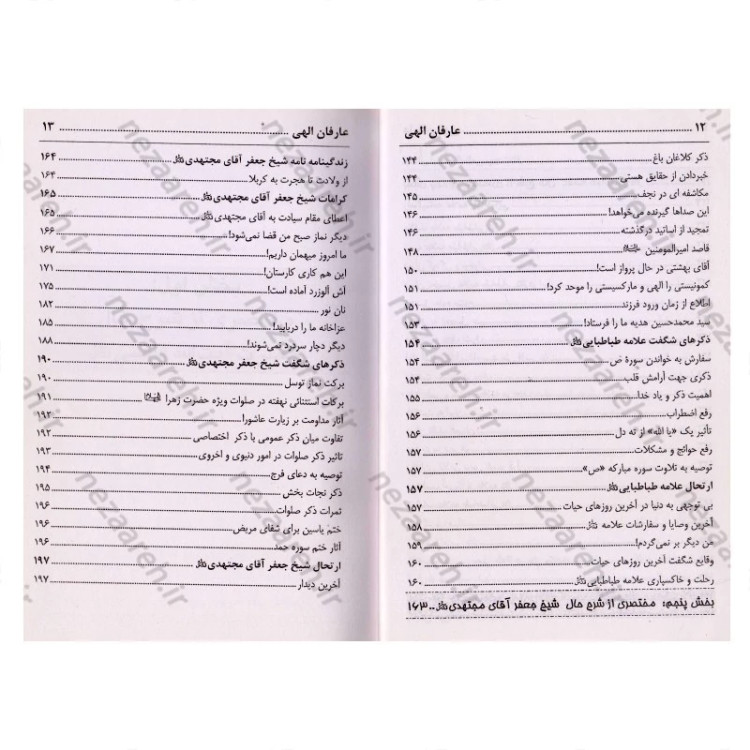 ۱۲ ........ عارفان الهی
ذکر کلاغان باغ ........ ۱۴۴
خبردادن از حقایق هستی ........ ۱۴۴
مکاشفه ای در نجف ........ ۱۴۵
این صداها گیرنده می‌خواهد! ........ ۱۴۶
تمجید از اساتید درگذشته ........ ۱۴۶
قاصد امیرالمومنین ........ ۱۴۸
آقای بهشتی در حال پرواز است! ........ ۱۵۰
کمونیستی را الهی و مارکسیستی را موحد کرد! ........ ۱۵۱
اطلاع از زمان ورود فرزند ........ ۱۵۱
سید محمدحسین هدیه ما را فرستاد! ........ ۱۵۳
ذکرهای شگفت علامه طباطبایی ........ ۱۵۴
سفارش به خواندن سورهٔ ص ........ ۱۵۴
ذکری جهت آرامش قلب ........ ۱۵۴
اهمیت ذکر و یاد خدا ........ ۱۵۵
رفع اضطراب ........ ۱۵۶
تأثیر یک «یا الله» از ته دل ........ ۱۵۶
رفع حوائج و مشکلات ........ ۱۵۷
توصیه به تلاوت سوره مبارکه «ص» ........ ۱۵۷
ارتحال علامه طباطبایی ........ ۱۵۷
بی توجهی به دنیا در آخرین روزهای حیات ........ ۱۵۷
آخرین وصایا و سفارشات علامه ........ ۱۵۸
من دیگر بر نمی‌گردم! ........ ۱۵۹
وقایع شگفت آخرین روزهای حیات ........ ۱۶۰
رحلت و خاکسپاری علامه طباطبایی ........ ۱۶۰
بخش پنجم: مختصری از شرح حال شیخ جعفر آقای مجتهدی .. ۱۶۳
عارفان الهی ........ ۱۳
زندگینامه نامه شیخ جعفر آقای مجتهدی ........ ۱۶۴
از ولادت تا هجرت به کربلا ........ ۱۶۴
کرامات شیخ جعفر آقای مجتهدی ........ ۱۶۵
اعطای مقام سیادت به آقای مجتهدی ........ ۱۶۵
دیگر نماز صبح من قضا نمی‌شود! ........ ۱۶۶
ما امروز میهمان داریم! ........ ۱۶۷
این هم کاری کارستان! ........ ۱۷۱
آش آلوزرد آماده است! ........ ۱۷۵
نان نور ........ ۱۸۲
عزاخانه ما را دریابید! ........ ۱۸۵
دیگر دچار سردرد نمی‌شوند! ........ ۱۸۸
ذکرهای شگفت شیخ جعفر مجتهدی ........ ۱۹۰
برکت نماز توسل ........ ۱۹۰
برکات استثنائی نهفته در صلوات ویژه حضرت زهرا ........ ۱۹۱
آثار مداومت بر زیارت عاشورا! ........ ۱۹۲
تفاوت میان ذکر عمومی با ذکر اختصاصی ........ ۱۹۲
تاثیر ذکر صلوات در امور دنیوی و اخروی ........ ۱۹۳
توصیه به دعای فرج ........ ۱۹۴
ذکر نجات بخش ........ ۱۹۵
ثمرات ذکر صلوات ........ ۱۹۶
ختم یاسین برای شفای مریض ........ ۱۹۶
آثار ختم سوره حمد ........ ۱۹۶
ارتحال شیخ جعفر آقای مجتهدی ........ ۱۹۷
آخرین دیدار ........ ۱۹۷
nezaareh.ir